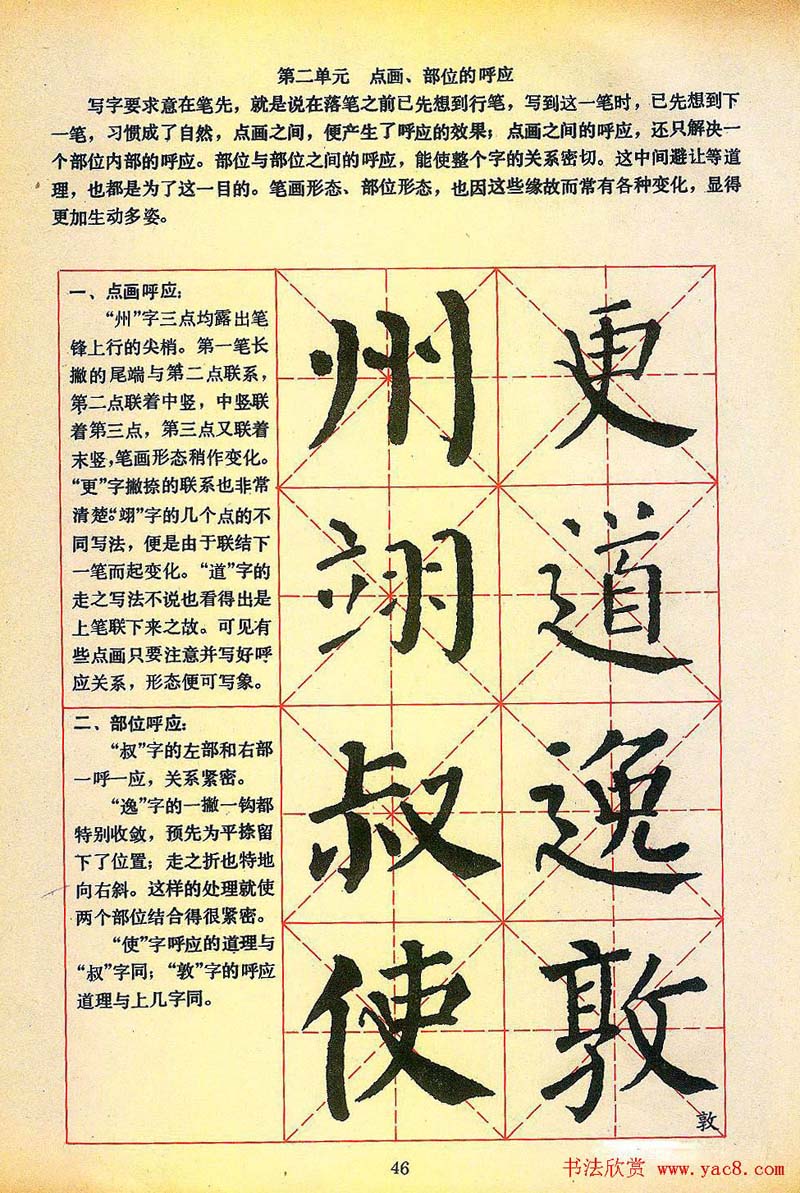 第二单元　点画、部位的呼应
写字要求意在笔先，就是说在落笔之前已先想到行笔，写到这一笔时，已先想到下
一笔，习惯成了自然，点画之间，便产生了呼应的效果；点画之间的呼应，还只解决一
个部位内部的呼应。部位与部位之间的呼应，能使整个字的关系密切。这中间避让等道
理，也都是为了这一目的。笔画形态、部位形态，也因这些缘故而常有各种变化，显得
更加生动多姿。
一、点画呼应：
“州”字三点均露出笔
锋上行的尖梢。第一笔长
撇的尾端与第二点联系，
第二点联着中竖，中竖联
着第三点，第三点又联着
末竖，笔画形态稍作变化。
“更”字撇捺的联系也非常
清楚。“翊”字的几个点的不
同写法，便是由于联结下
一笔而起变化。“道”字的
走之写法不说也看得出是
上笔联下来之故。可见有
些点画只要注意并写好呼
应关系，形态便可写象。
二、部位呼应：
“叔”字的左部和右部
一呼一应，关系紧密。
“逸”字的一撇一钩都
特别收敛，预先为平捺留
下了位置；走之折也特地
向右斜。这样的处理就使
两个部位结合得很紧密。
“使”字呼应的道理与
“叔”字同；“敦”字的呼应
道理与上几字同。
州 更
翊 道
叔 逸
使 敦
敦
46
书法欣赏 www.yac8.com